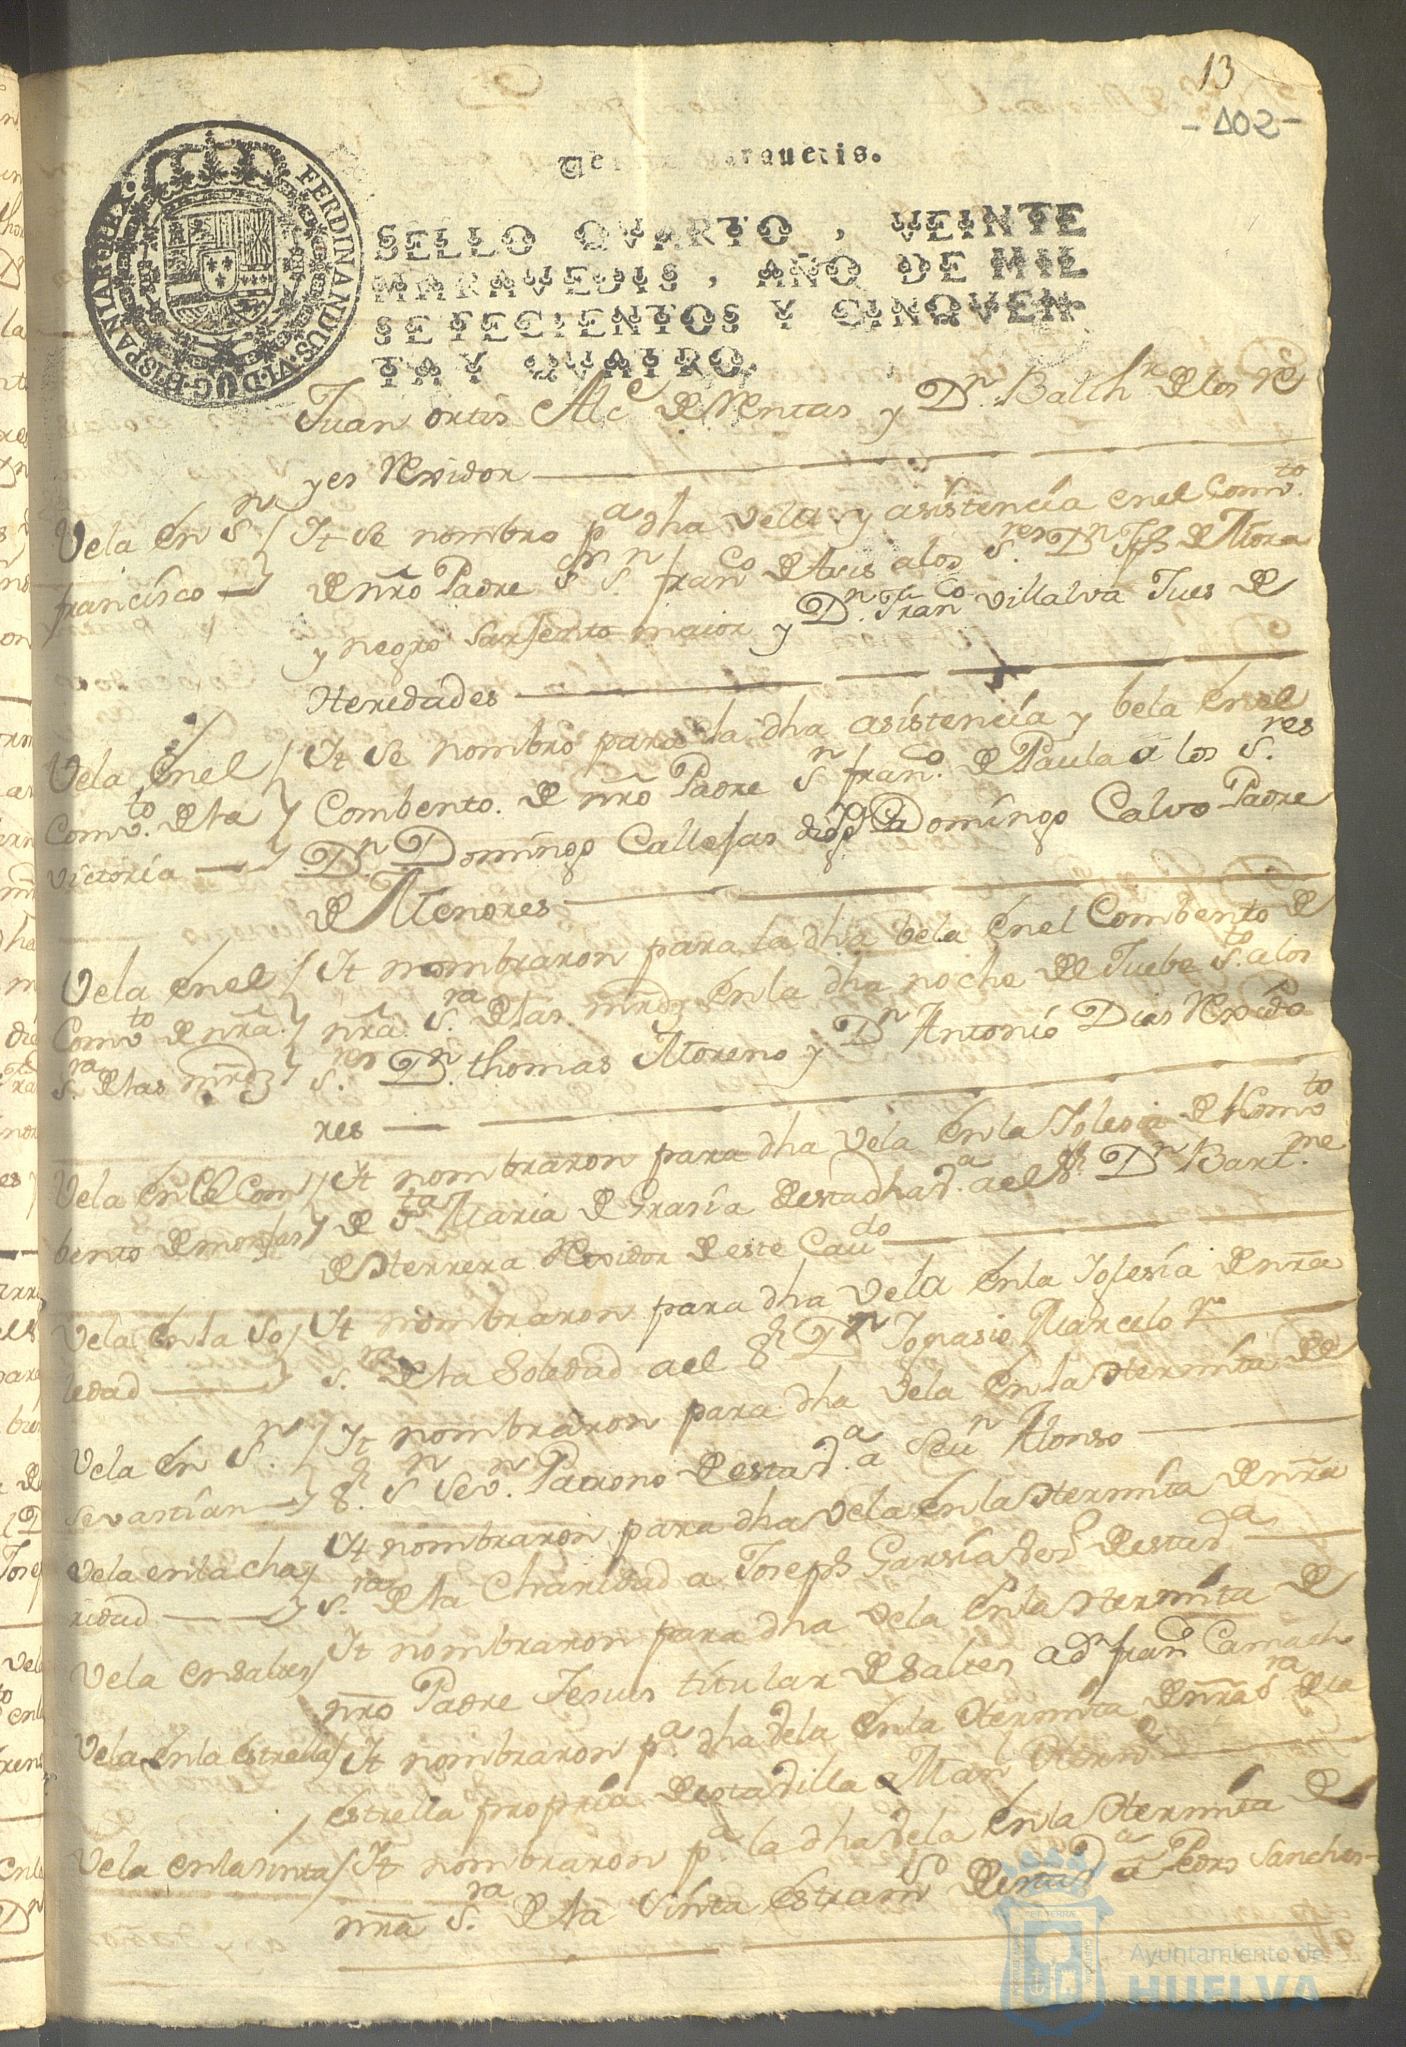 13
- 402 -
FERDINANDUS·VI·D·G·HISPANIAR·REX·
SELLO QVARTO, VEINTE
MARAVEDIS, AÑO DE MIL
SETECIENTOS Y CINQVEN-
TA Y QUATRO.
Juan ortis Alc.e de Ventas y Dn. Balthr. de los Re
yes Rexidor
Vela en Sn. It Se nombro pa. dha vela y asistencia en el Comto.
francisco de nro Padre Sn. franco. de Asis a los Sres. Dn. Jph de Mora
y negro Sarjento maior y Dn. Franco villalva Jues de
Heredades
Vela en el It Se nombro para la dha asistencia y bela en el
Comto. de la Combento. de nro Padre Sn. franco. de Paula a los Sres.
victoria Dn. Domingo Callejas digo Domingo Calvo Padre
de Menores
Vela en el It nombraron para la dha bela en el Combento de
Comto de nra. nra. Sra. de las mrdz en la dha noche de Juebe Sto. a los
Sra. de las mrdz Sres Dn. thomas Moreno y Dn Antonio Dias Rexido
res
Vela en el Com It nombraron para dha vela en la Iglesia de Comto
bento de monjas de Sta Maria de Grasia de esta dha Va. a el Sr. Dn Bartme
de Herrera Rexidor de este Caudo
Vela en la So It nombraron para dha vela en la Iglesia de nra
ledad Sra. de la Soledad a el Sr Dn Ignasio Marcelo
Vela en Sn. It nombraron para dha vela en la Hermita de
sevastian Sr. Sn Sevn. Patrono de esta Va. a Seun Alonso
Vela en la cha It nombraron para dha vela en la Hermita de nra
ridad Sra. de la Charidad a Joseph Garsia de esta Va
Vela en Saltes It nombraron para dha vela en la Hermita de
nro Padre Jesus titular de Saltes a Dn fran Camacho
Vela en la estrella It nombraron pa. dha vela en la Hermita de nra Sra de la
estrella propria de esta Villa a Man Hern
Vela en la sinta It nombraron pa. la dha vela en la Hermita de
nra Sra. de la Sinta de esta Va a Pedro Sanches
Ayuntamiento de
HUELVA